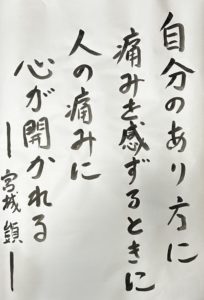 自分のあり方に
痛みを感ずるときに
人の痛みに
心が開かれる
―宮城 顗―